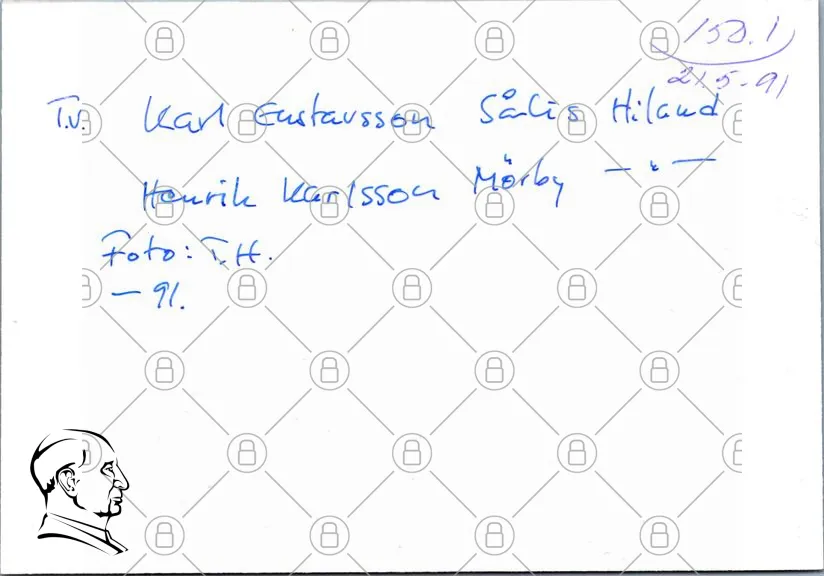 150.1
21.5-91
T.v. Karl Gustavsson Sålis Hiland
Henrik Karlsson Mörby — " —
Foto: T.H.
— 91.